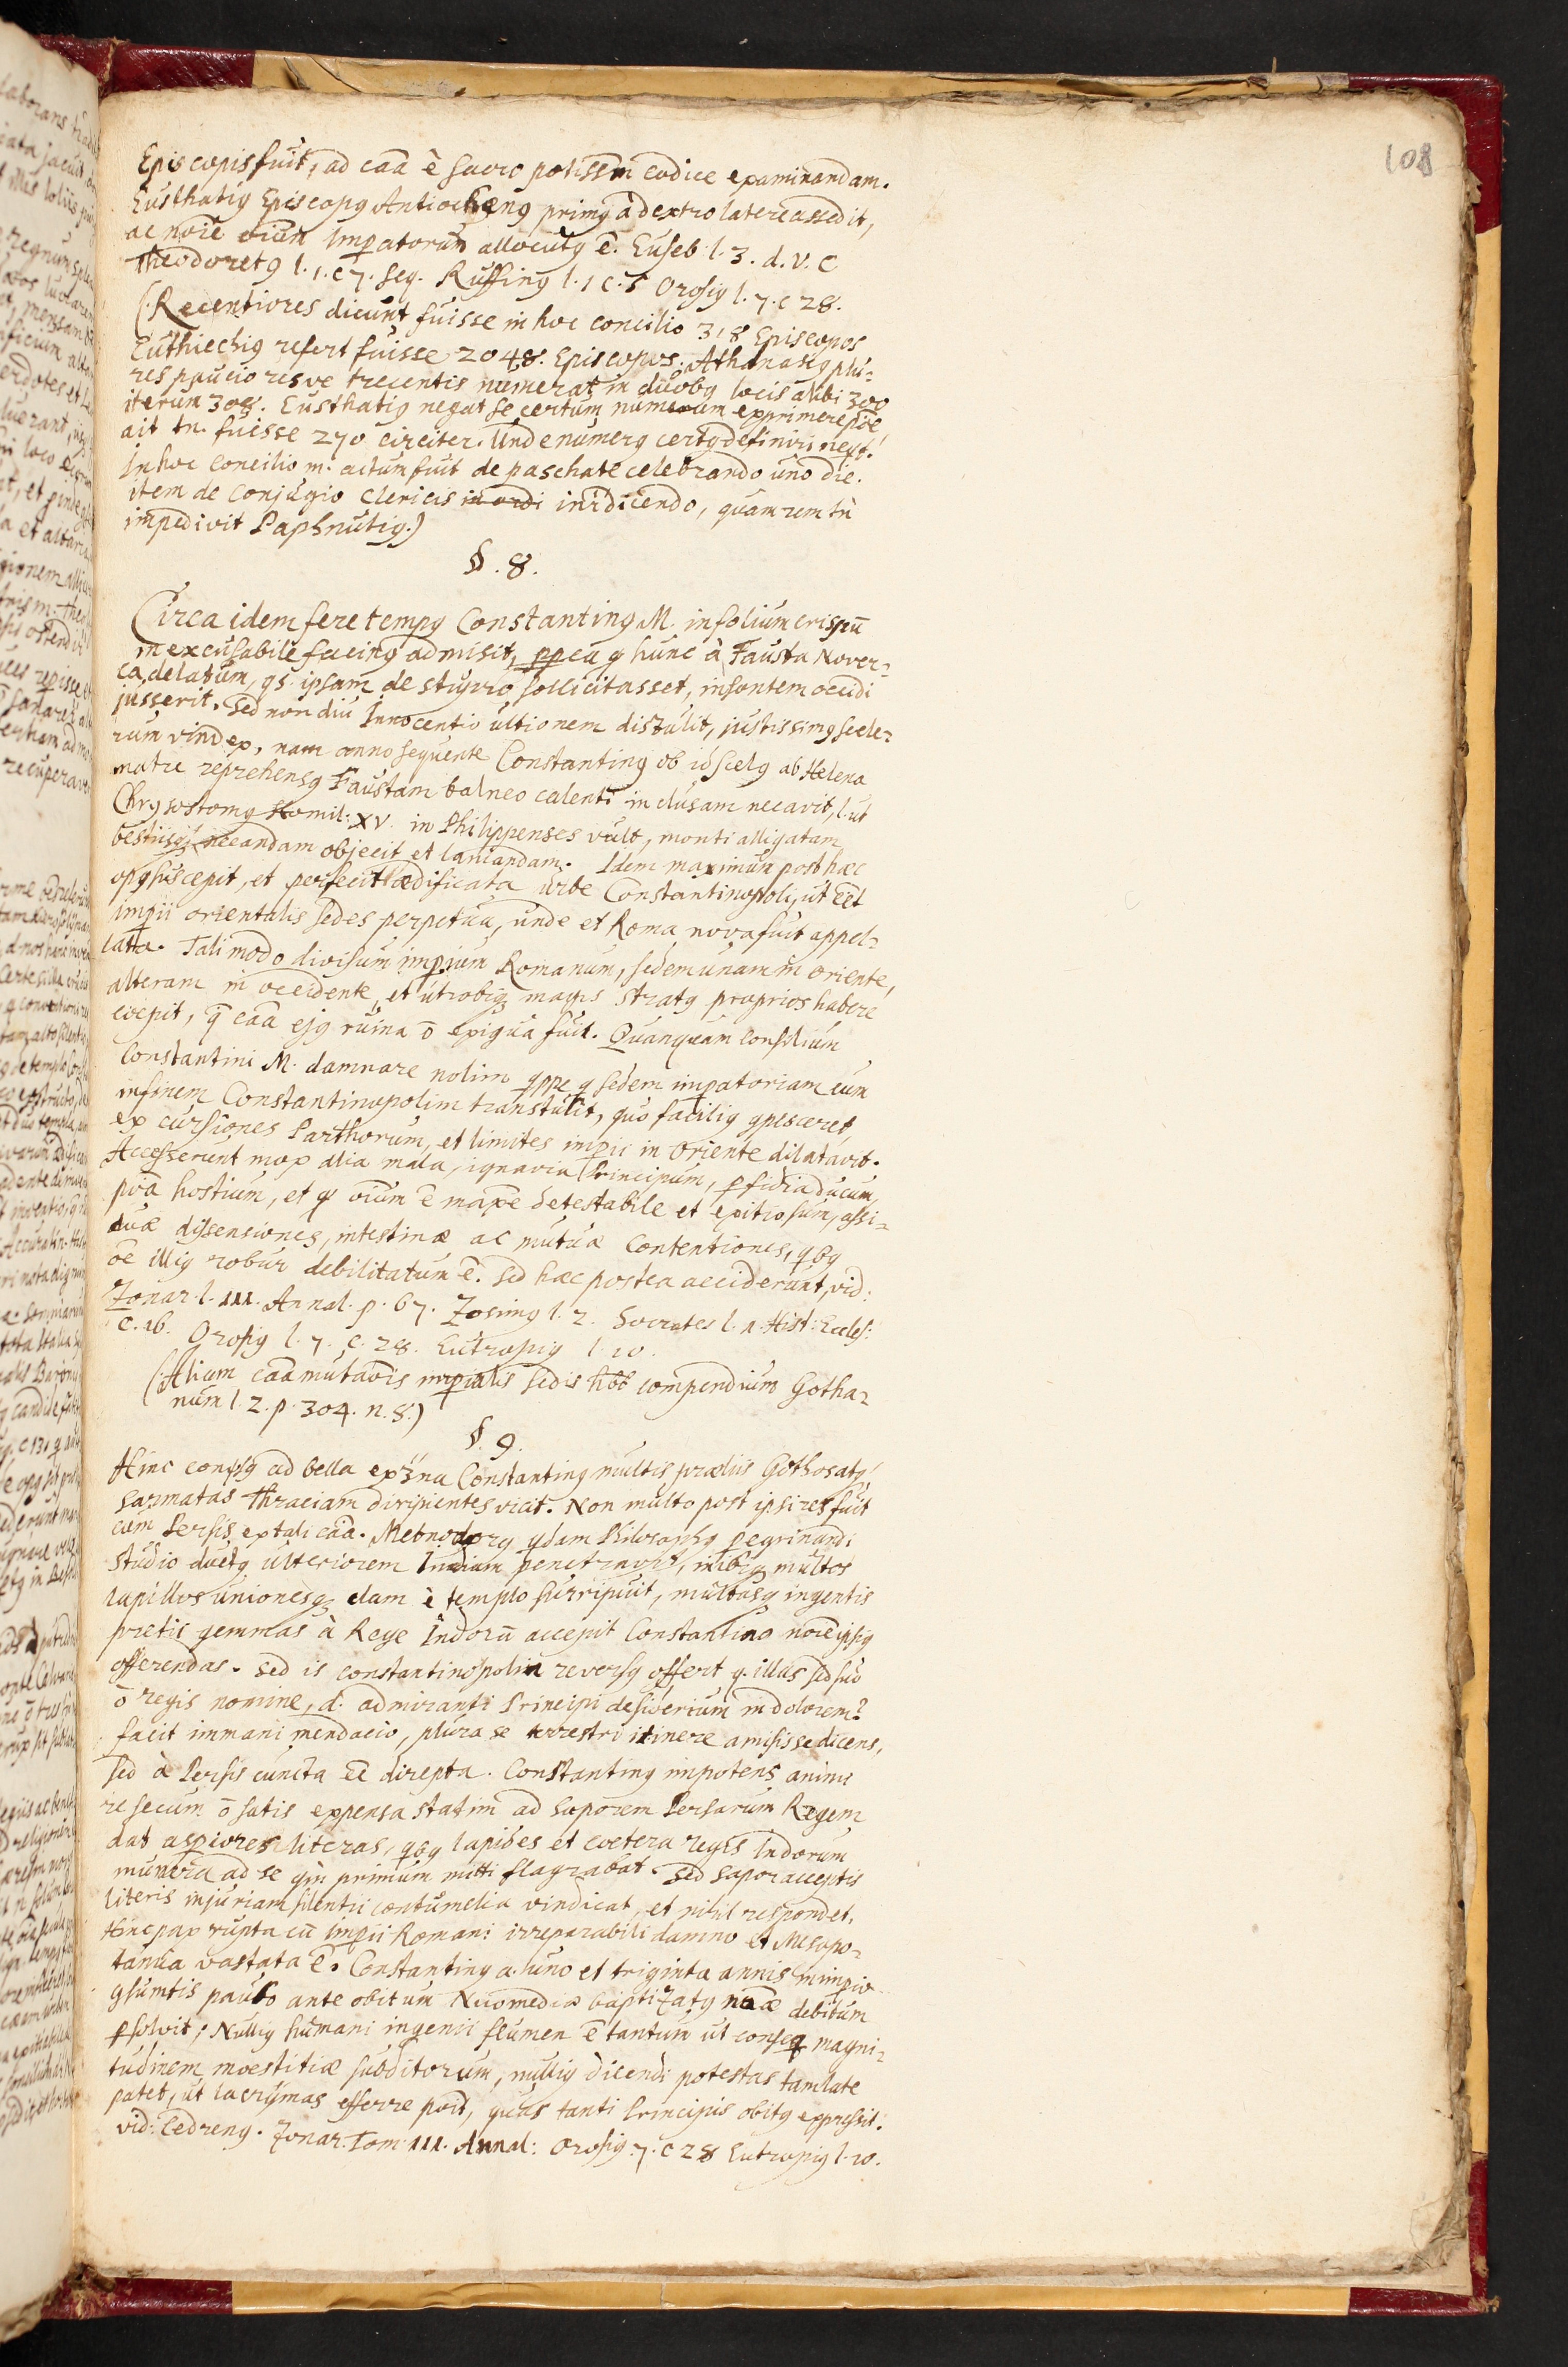 108
Episcopis fuit, ad caā è sacro potissm̄ codice examinandam.
Eusthatiꝰ Episcopꝰ Antiochenꝰ primꝰ à dextro latere assedit,
ac noīe oīum Imꝑatorum allocutꝰ ē. Euseb. l. 3. d. V. C
Theodoretꝰ l. 1. c 7. seq. Ruffinꝰ l. 1 c. 5 Orosiꝰ l. 7. c 28.
(Recentiores dicunt fuisse in hoc concilio 318 Episcopos
Euthiechiꝰ refert fuisse 2048. Episcopos. Athanasiꝰ plu=
res paucioresve trecentis numerat in duobꝰ locis alibi 300
iterum 308. Eusthatiꝰ negat se certum numerum exprimere
ait tn. fuisse 270 circiter. Unde numerꝰ certꝰ definiri
In hoc concilio m. actum fuit de paschate celebrando uno die.
item de conjugio Clericis in ordi inrdicendo, quam rem tn̄
impedivit Paphnutiꝰ.)
§. 8.
Circa idem fere tempꝰ Constantinꝰ M. in folium crispū
inexcusabile facinꝰ admisit, ꝓpea q hunc à Fausta Nover=
ca delatum, qs. ipsam de stupro sollicitasset, insontem occidi
jusserit. Sed non diu Innocentio ultionem distulit, justissimꝰ scele=
rum vindex, nam anno sequente Constantinꝰ ob id scelꝰ ab Helena
matre reprehensꝰ Faustam balneo calenti inclusam necavit, l. ut
Chrysostomꝰ Homil: XV. in Philippenses vult, monti alligatam
bestiisq necandam objecit et laniandam. Idem maximum post hæc
opꝰ suscepit, et perfecit ædificata urbe Constantinopoli, ut eēt
imꝑii orientalis sedes perpetua, unde et Roma nova fuit appel=
lata. Tali modo divisum imꝑium Romanum, sedem unam in oriente,
alteram in occidente, et utrobiq magis stratꝰ proprios habere
coepit, q̄ caā ejꝰ ruina ō exigua fuit. Quanquam consilium
Constantini M. damnare nolim qppe q sedem imꝑatoriam eum
in finem Constantinopolim transtulit, quo faciliꝰ ꝯpesceret
excursiones Parthorum, et limites imꝑii in Oriente dilatavit.
Accesserunt mox alia mala, ignavia Principum, ꝑfidia ducum,
poīa hostium, et q oīum ē maxē detestabile et exitiosum, assi=
duæ dissensiones, intestinæ ac mutuæ contentiones, qbꝰ
oē illiꝰ robur debilitatum ē. Sed hæc postea acciderunt, vid:
Zonar. l. III. Annal. p. 67. Zosimꝰ l. 2. Socrates l. 1. Hist: Eccles:
c. 16. Orosiꝰ l. 7. c. 28. Eutropiꝰ l. 10.
(Alium caā mutaōis imꝑialis sedis hēt compendium Gotha=
num l. 2. p. 304. n. 8.)
§. 9.
Hinc ad bella Constantinꝰ multis præliis Gothos atq
Sarmatas Thraciam diripientes vicit. Non multo post ipsi res fuit
cum Persis ex tali caā. Metrodorꝰ qdam Philosophꝰ ꝑegrinandi
studio ductꝰ ulteriorem Indiam penetravit, inibiq multos
lapillos unionesq clam è templo surripuit, multasq ingentis
pretii gemmas à Rege Indorū accepit Constantino noīe ipsiꝰ
offerendas. Sed is constantinopolin reversꝰ offert q. illas sed suo
ō regis nomine, d. admiranti Principi desiderium in dolorem
facit immani mendacio, plura se terrestri itinere amisisse dicens,
sed à Persis cuncta eē direpta. Constantinꝰ impotens animi
re secum ō satis expensa statim ad Saporem Persarum Regem
dat asꝑiores literas, qbꝰ lapides et coetera regis Indorum
munera ad se qm̄ primum mitti flagrabat. Sed Sapor acceptis
literis injuriam silentii contumelia vindicat, et nihil respondet.
Hinc pax rupta cū imꝑii Romani irreparabili damno et Mesopo=
tamia vastata ē. Constantinꝰ a. uno et triginta annis in imꝑio
ꝯsumtis paulo ante obitum Nicomediæ baptizatꝰ naæ debitum
ꝑsolvit; Nulliꝰ humani ingenii flumen ē tantum ut conseq magni=
tudinem moestitiæ subditorum, nulliꝰ dicendi potestas tam late
patet, ut lacrymas efferre poīt, quas tanti Principis obitꝰ expressit.
vid: Cedrenꝰ. Zonar. Tom. III. Annal: Orosiꝰ. 7. c 28 Eutropiꝰ l. 10.